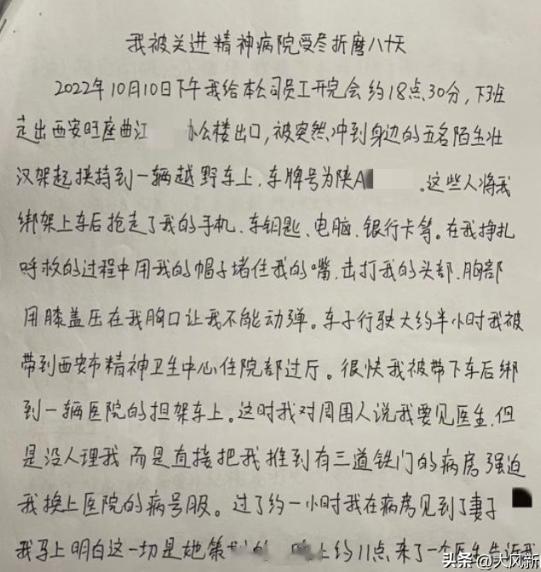 我被关进精神病院受尽折磨八十天
2022年10月10日下午我给本公司员工开完会约18点30分,下班
走出西安旺座曲江 办公楼出口,被突然冲到身边的五名陌生壮
汉架起挟持到一辆越野车上,车牌号为陕A 。这些人将我
绑架上车后抢走了我的手机、车钥匙、电脑、银行卡等。在我挣扎
呼救的过程中用我的帽子堵住我的嘴,击打我的头部、胸部
用膝盖压在我胸口让我不能动弹。车子行驶大约半小时我被
带到西安市精神卫生中心住院部过厅。很快我被带下车后绑
到一辆医院的担架车上。这时我对周围人说我要见医生,但
是没人理我而是直接把我推到有三道铁门的病房强迫
我换上医院的病号服。过了约一小时我在病房见到了妻子
我马上明白这一切是她策划的 晚上约11点来了一个医生
头条@大风新